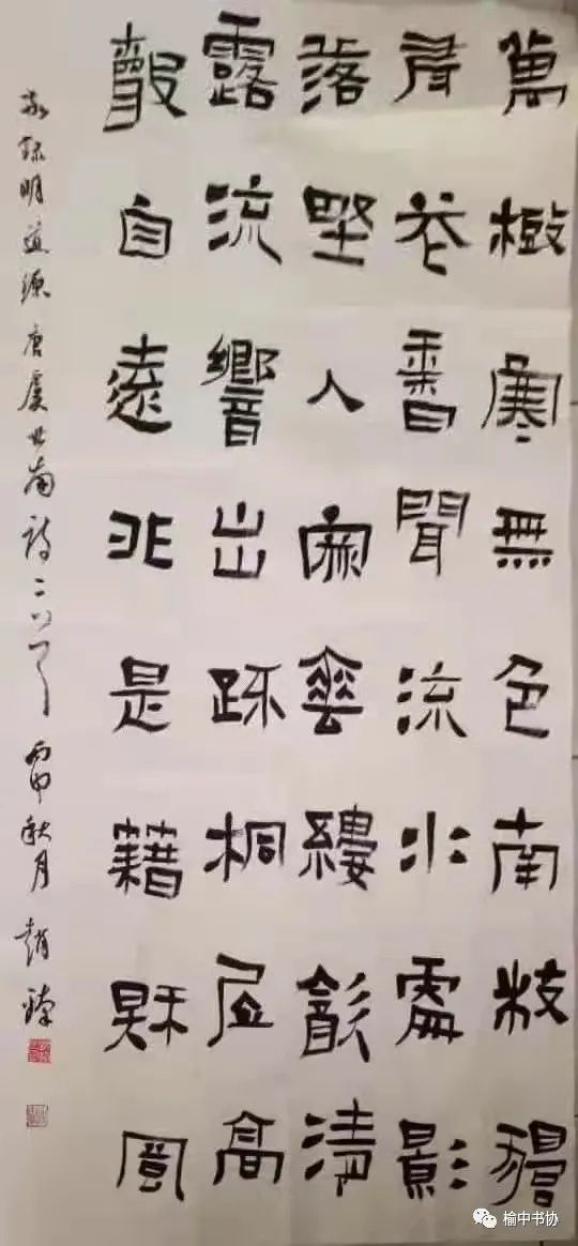 萬樹寒無色南枝獨
有花香聞流水處影
落埜人家垂縷飲清
露流響出踈桐居高
聲自遠非是藉秋風
敬錄明道源唐虞世南詩二首 丙申秋月 趙
榆中书协